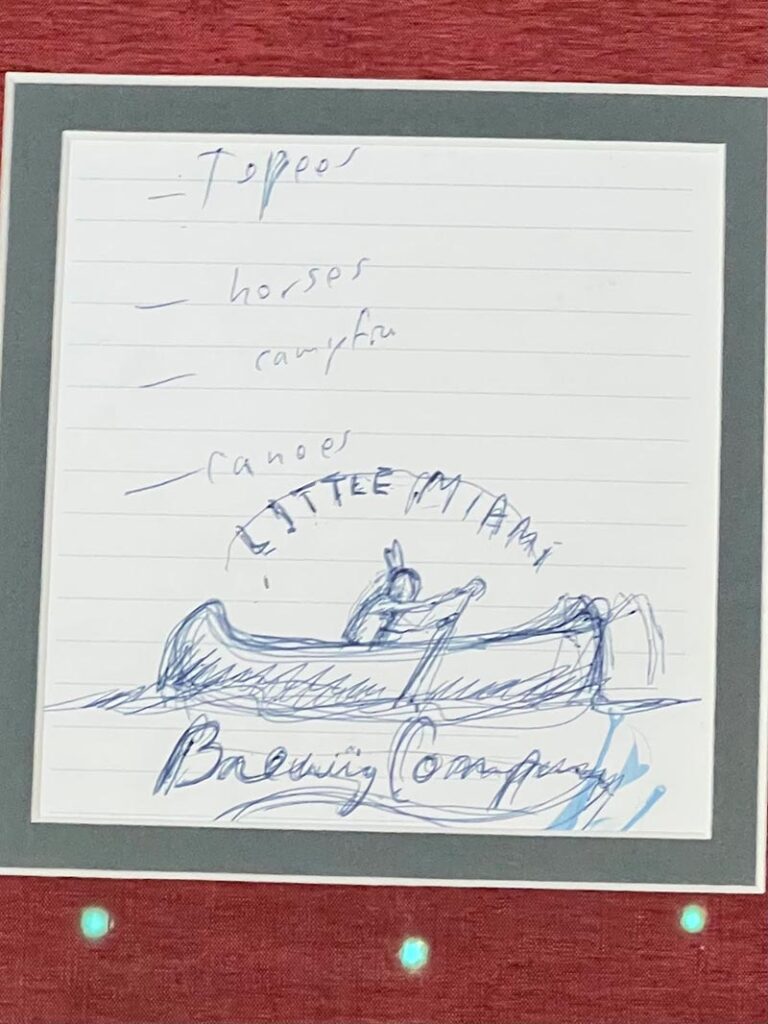 – Tepees
– horses
– campfire
– canoes
LITTLE MIAMI
Brewing Company